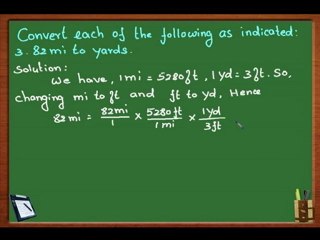 Convert each of the following as indicated:
3. 82mi to yards.
Solution:
We have, 1mi = 5280ft, 1yd = 3ft. So,
changing mi to ft and ft to yd, Hence
82mi = 82mi/1 × 5280ft/1mi × 1yd/3ft